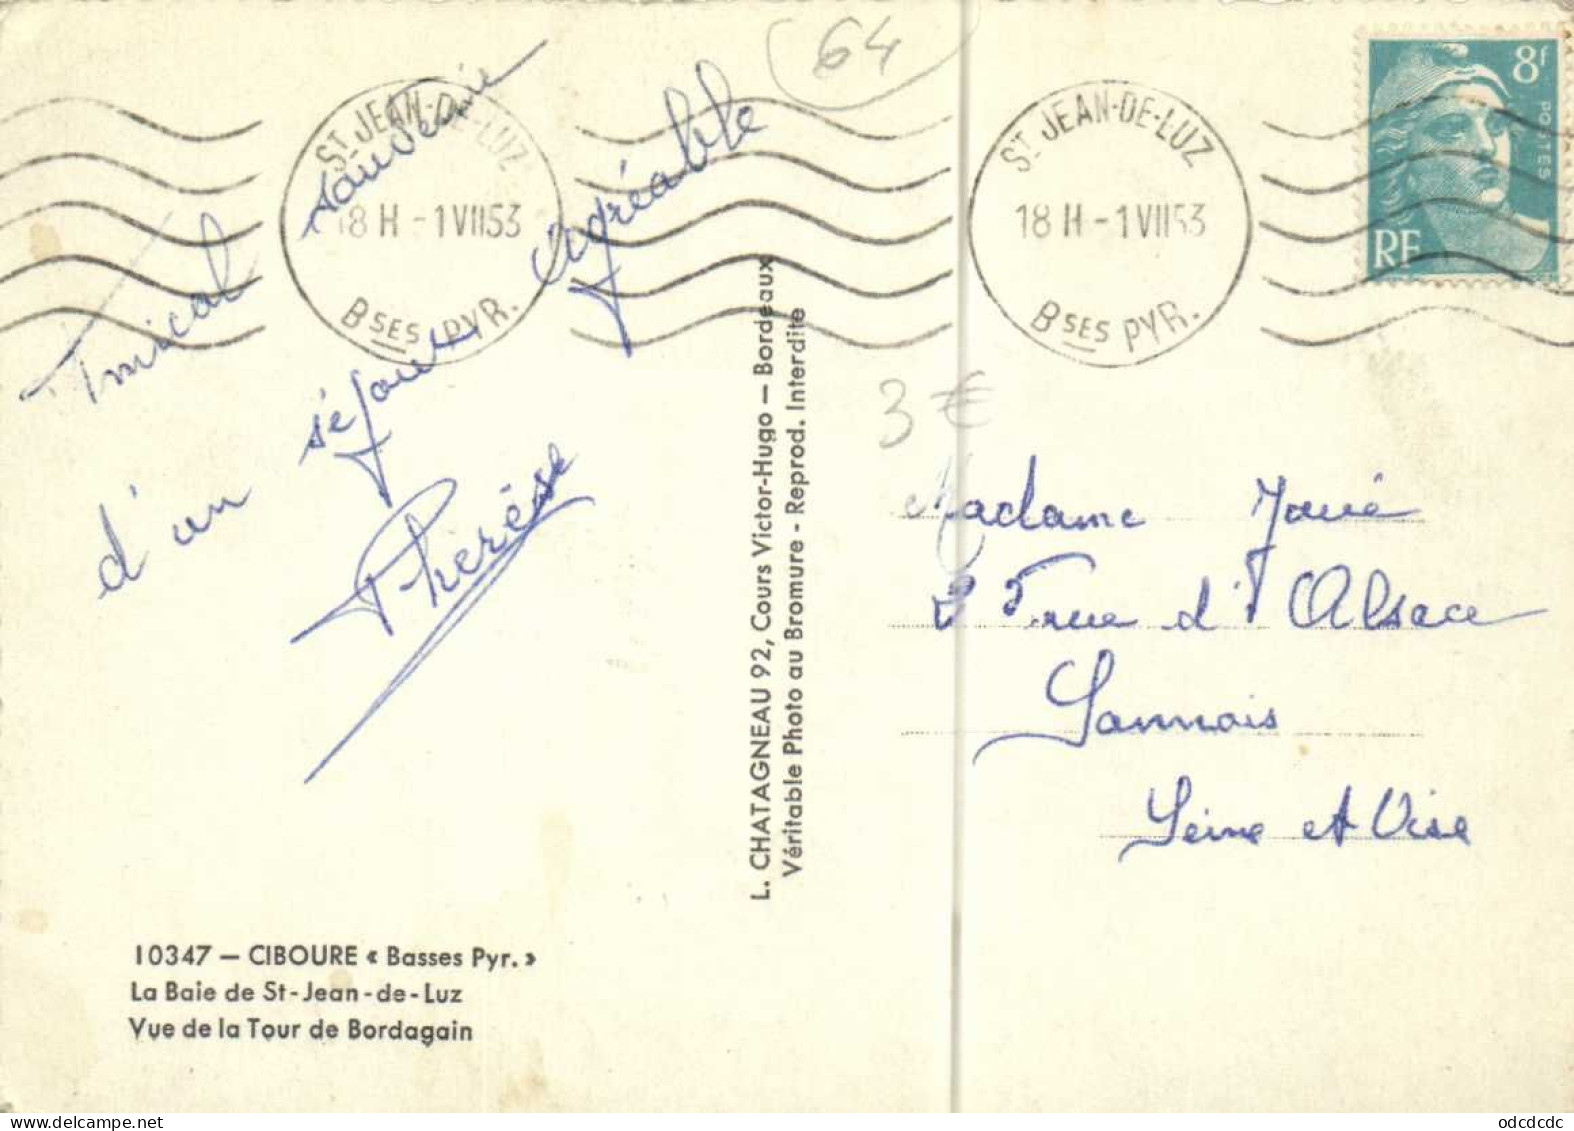 64
ST JEAN-DE-LUZ
18 H - 1 VII 53
BSES PYR.
ST JEAN-DE-LUZ
18 H - 1 VII 53
BSES PYR.
8f
POSTES
RF
Amical souvenir
d'un séjour agréable
Thérèse
3 €
L. CHATAGNEAU 92, Cours Victor-Hugo — Bordeaux
Véritable Photo au Bromure - Reprod. Interdite
Madame
rue d'Alsace
Sannois
Seine et Oise
10347 — CIBOURE « Basses Pyr. »
La Baie de St-Jean-de-Luz
Vue de la Tour de Bordagain
odcdcdc